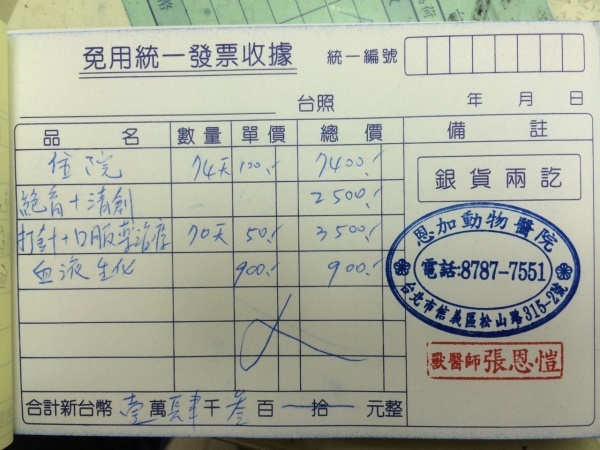 免用統一發票收據 統一編號
台照 年 月 日
品 名 數量 單價 總 價 備 註
住院 74天 100.- 7400.-
絕育+清創 2500.-
打針+口服藥治療 70天 50.- 3500.-
血液生化 900.- 900.-
銀貨兩訖
恩加動物醫院
電話:8787-7551
台北市信義區松山路315-2號
獸醫師張恩愷
合計新台幣 壹 萬 肆 千 叁 百 一 拾 一 元整